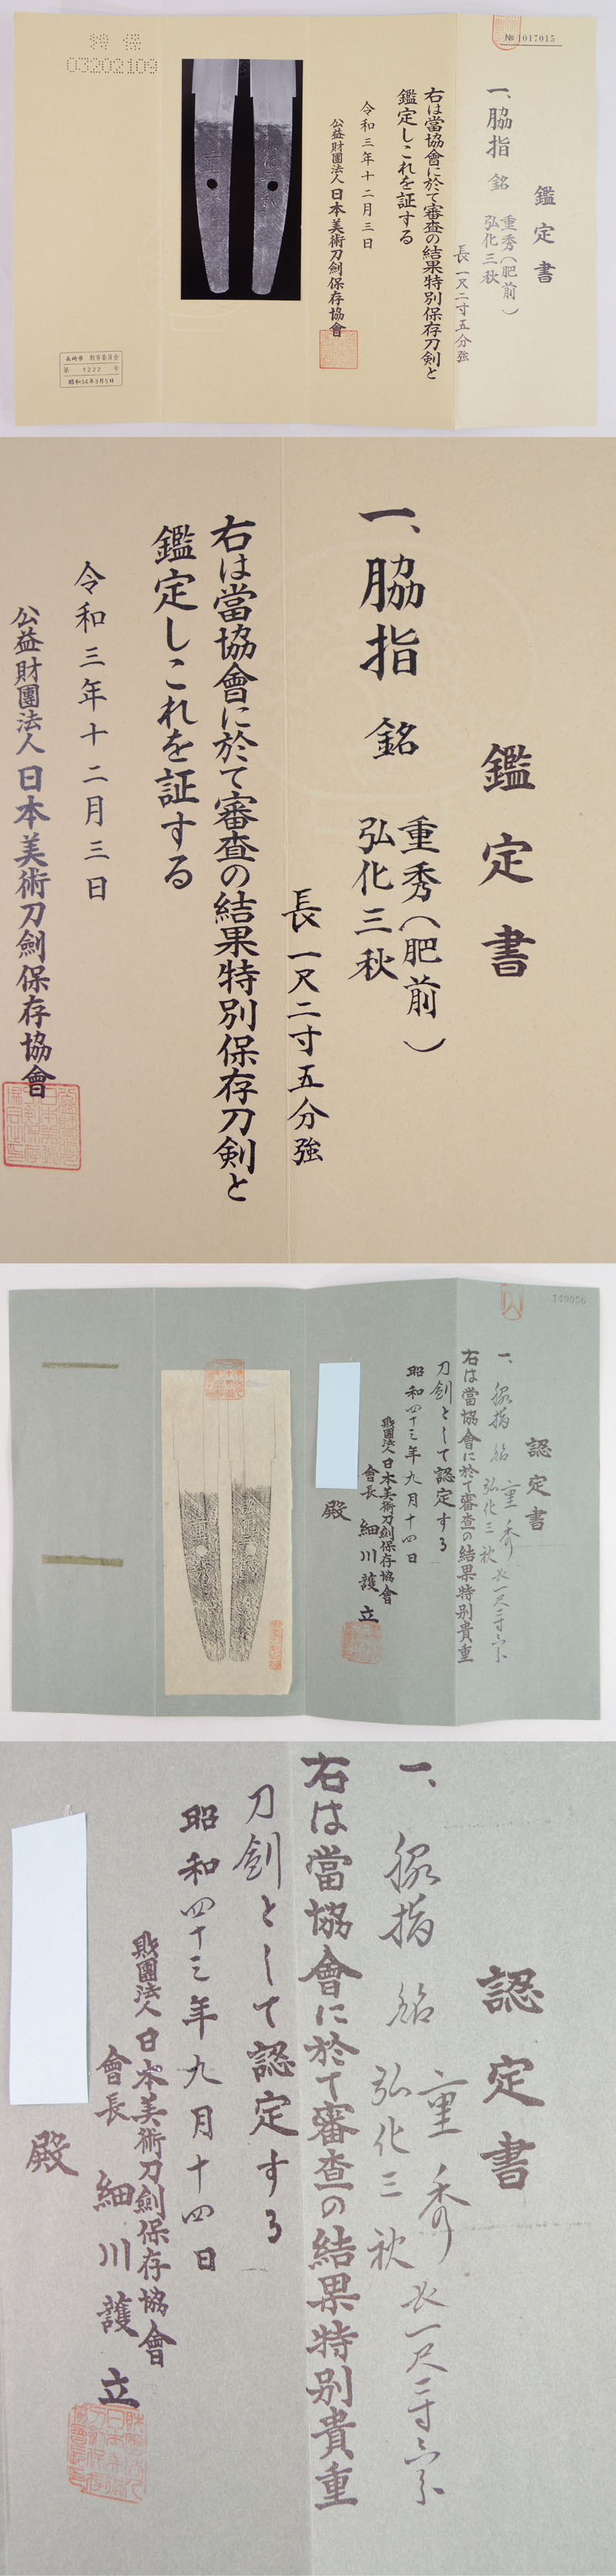 № 1017015
鑑定書
一、脇指 銘 重秀(肥前 )
弘化三秋
長 一尺二寸五分強
右は當協會に於て審査の結果特別保存刀剣と
鑑定しこれを証する
令和三年十二月三日
公益財團法人 日本美術刀劍保存協會
特保
03202109
長崎県 教育委員会
第 1222 号
昭和34年3月5日
鑑定書
一、脇指 銘 重秀(肥前 )
弘化三秋
長 一尺二寸五分強
右は當協會に於て審査の結果特別保存刀剣と
鑑定しこれを証する
令和三年十二月三日
公益財團法人 日本美術刀劍保存協會
認定書
一、脇指 銘 重秀
弘化三秋
長一尺二寸
右は當協會に於て審査の結果特別貴重
刀劍として認定する
昭和四十三年九月十四日
財團法人 日本美術刀劍保存協會
會長 細川護立
殿
認定書
一、脇指 銘 重秀
弘化三秋
長一尺二寸
右は當協會に於て審査の結果特別貴重
刀劍として認定する
昭和四十三年九月十四日
財團法人 日本美術刀劍保存協會
會長 細川護立
殿